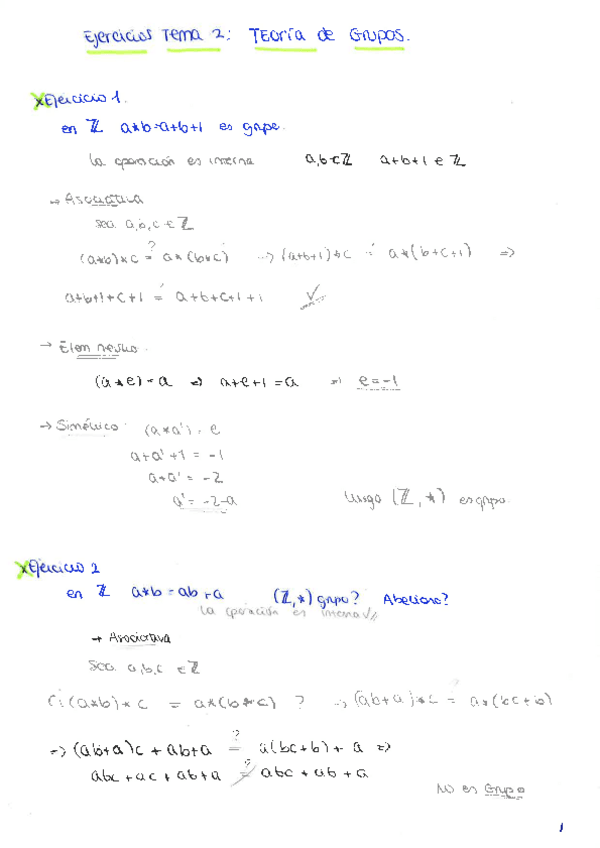 Ejercicios Tema 2: Teoría de Grupos.
Ejercicio 1.
en ℤ a*b=a+b+1 es grupo.
la operación es interna a,b∈ℤ a+b+1 ∈ ℤ
→ Asociativa
sea a,b,c ∈ ℤ
(a*b)*c ?= a*(b*c) → (a+b+1)*c = a*(b+c+1) ⇒
a+b+1+c+1 = a+b+c+1+1 ✓
→ Elem neutro.
(a*e)=a ⇒ a+e+1=a ⇒ e=-1
→ Simétrico (a*a') = e
a+a'+1 = -1
a+a' = -2
a' = -2-a
luego (ℤ,*) es grupo
Ejercicio 2
en ℤ a*b = ab+a (ℤ,*) grupo? Abeliano?
la operación es interna ✓
→ Asociativa
Sea a,b,c ∈ ℤ
¿(a*b)*c = a*(b*c)? → (ab+a)*c ?= a*(bc+b)
⇒ (ab+a)c + ab+a ?= a(bc+b)+a ⇒
abc+ac+ab+a ?= abc+ab+a
No es Grupo
1